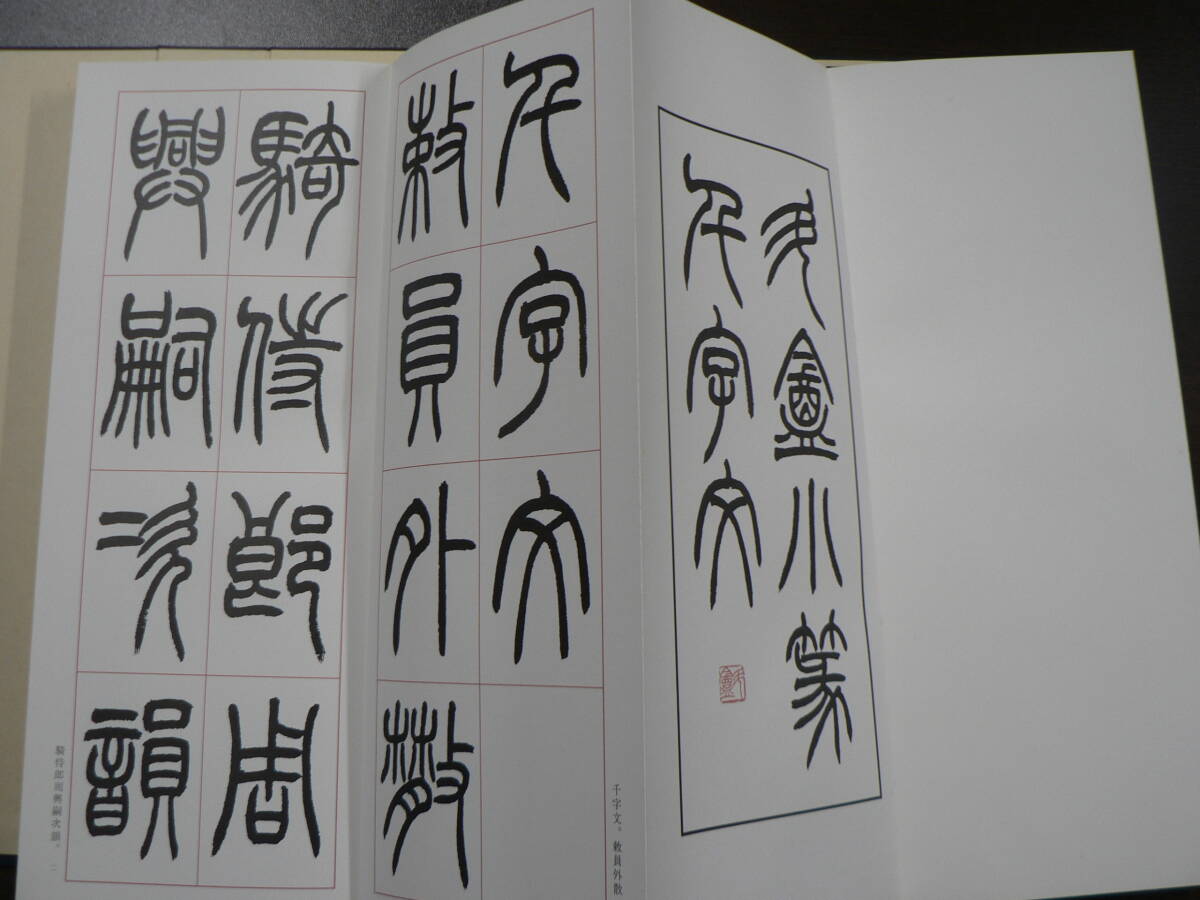 盦小篆
千字文
千字文
敕員外散
千字文。敕員外散
騎侍郎周
興嗣次韻
騎侍郎周興嗣次韻。 二